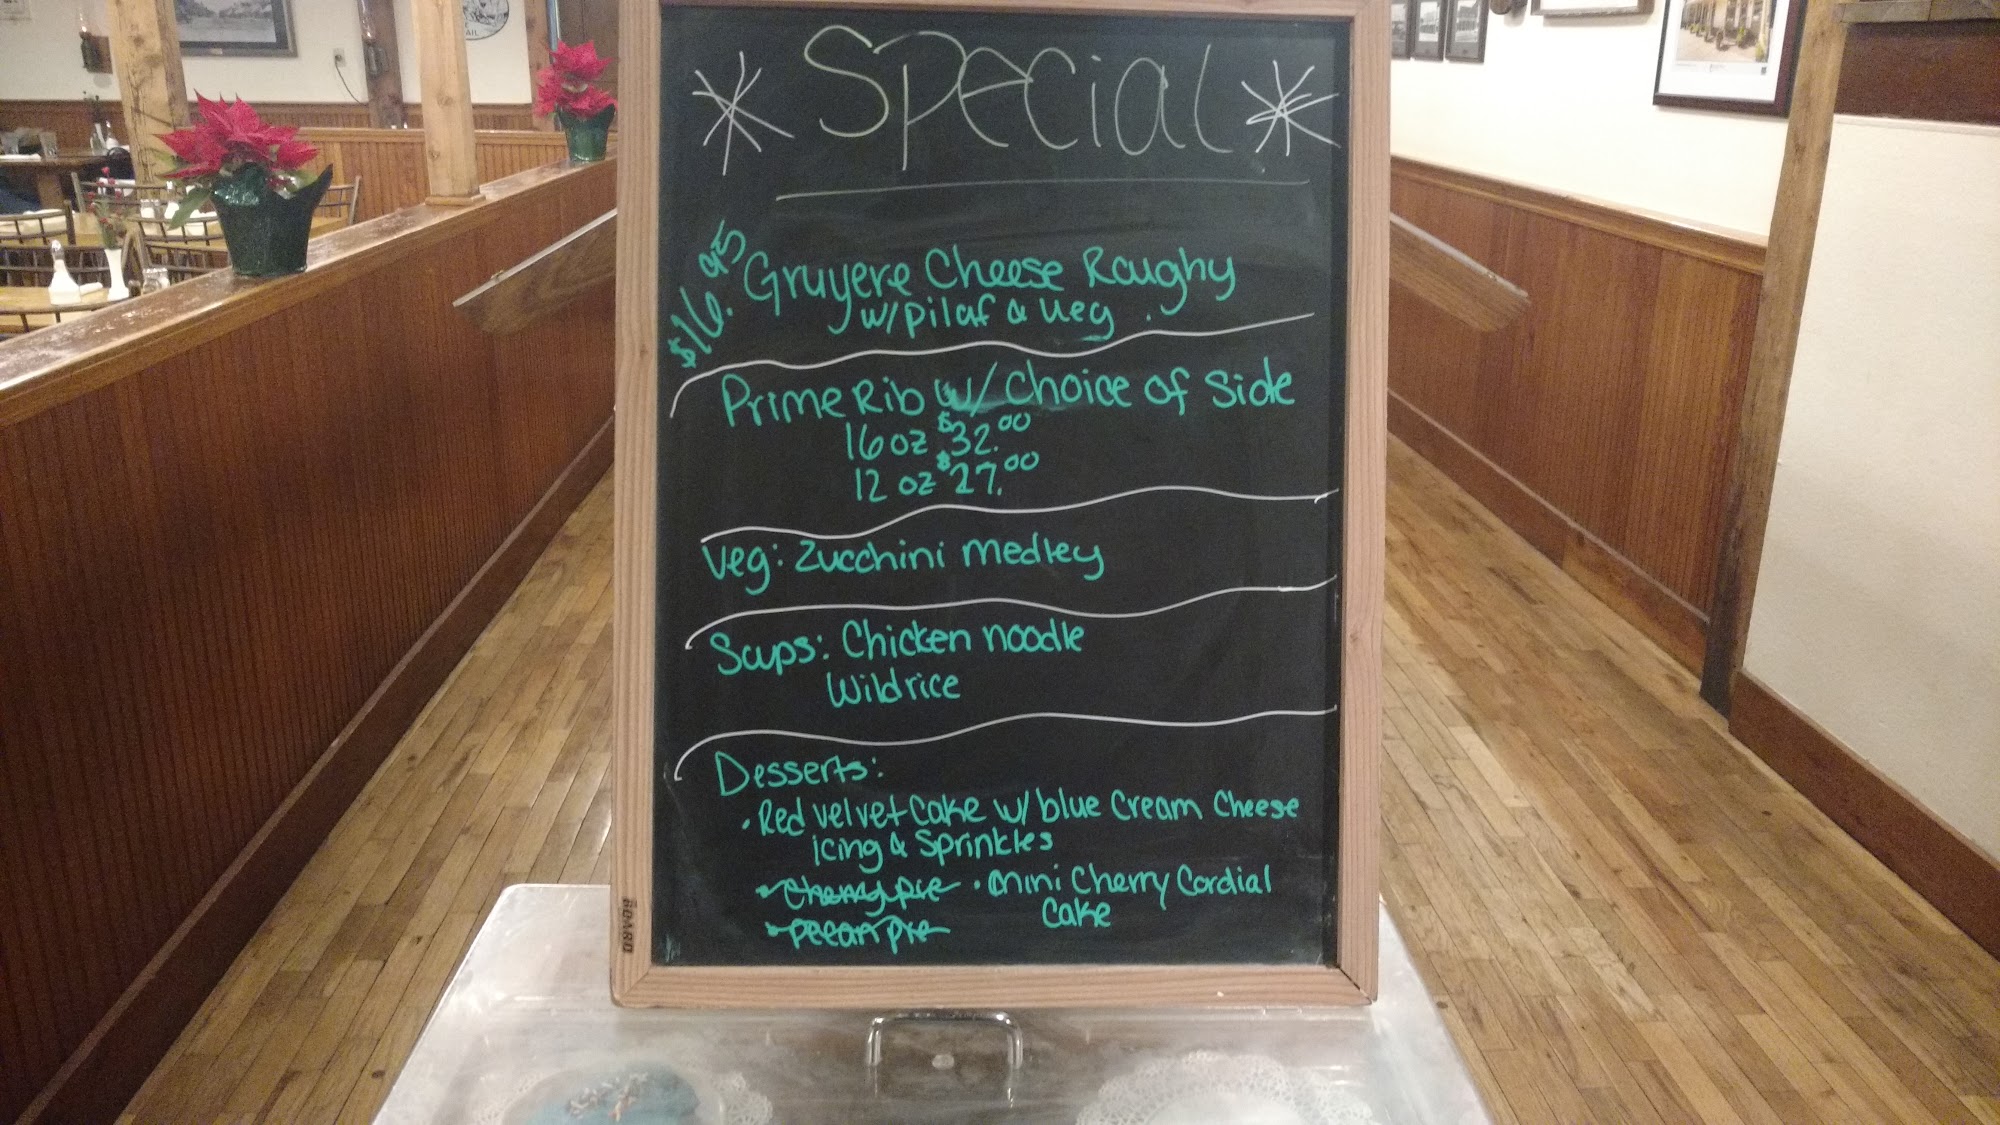 * Special *
$16.95 Gruyere Cheese Roughy
w/pilaf & veg.
Prime Rib w/ Choice of Side
16 oz $32.00
12 oz $27.00
Veg: Zucchini medley
Soups: Chicken noodle
Wild rice
Desserts:
• Red velvet cake w/ blue cream cheese
icing & sprinkles
• Cherry pie • mini Cherry Cordial
Cake
• pecan pie
BOARD
AIL